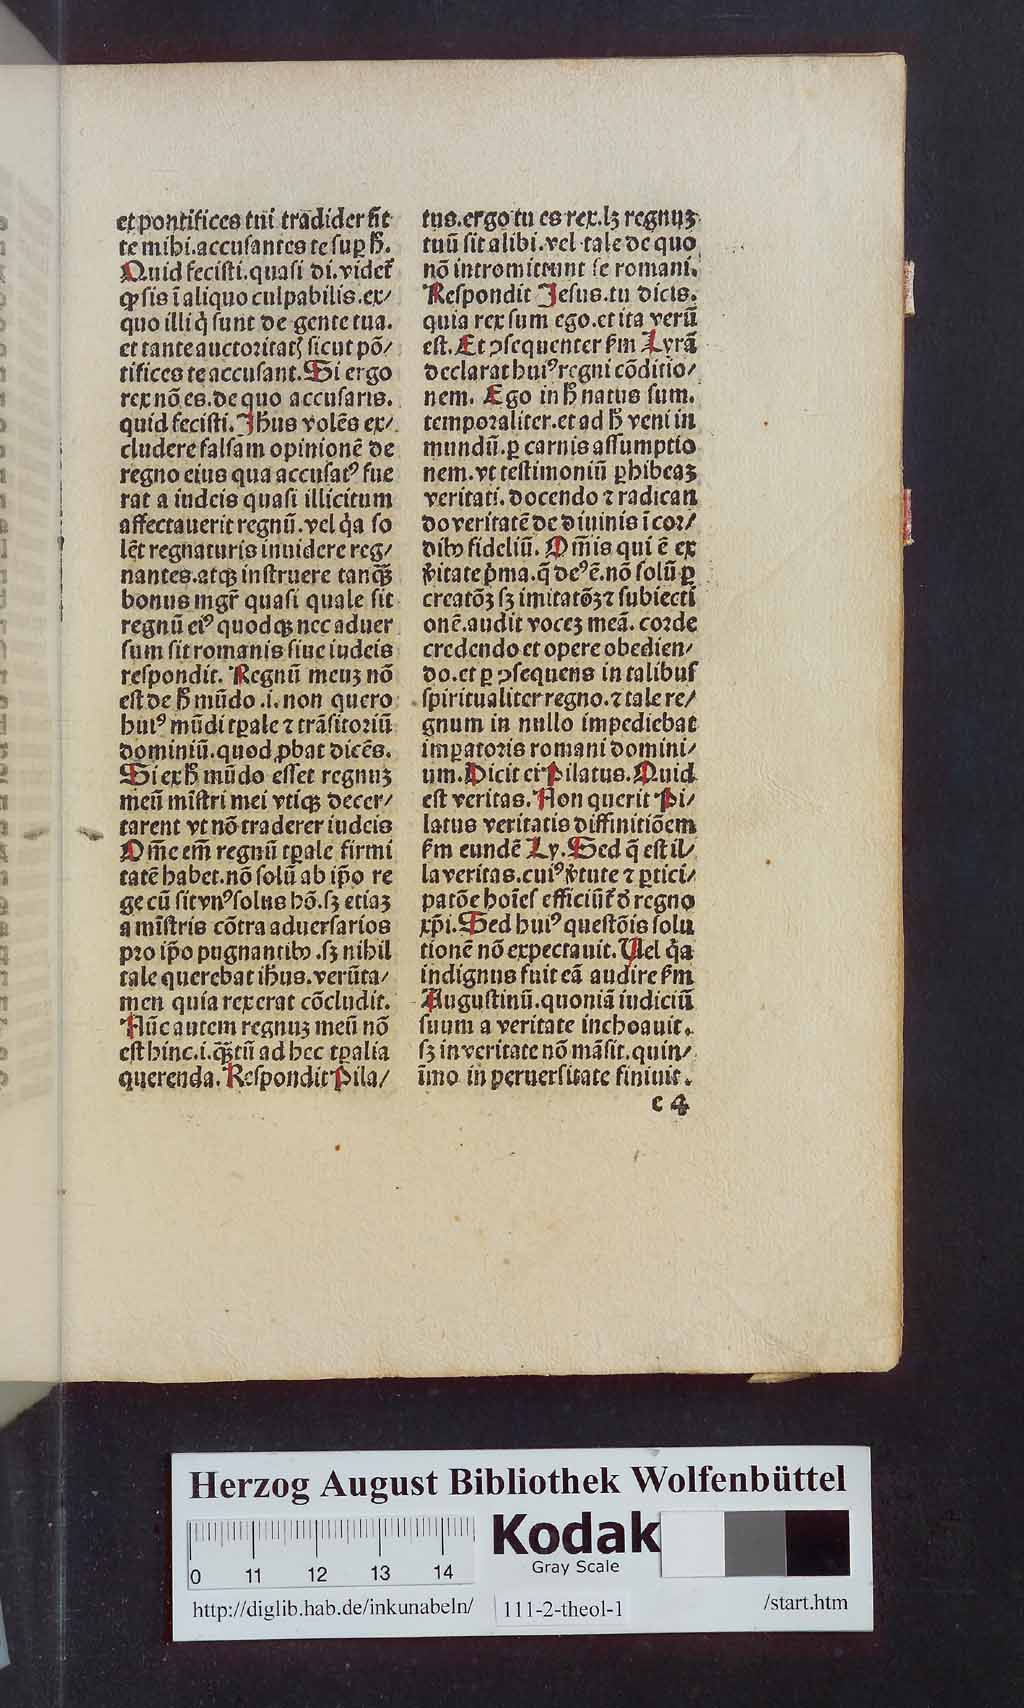 et pontifices tui tradider̄ūt
te mihi.accusantes te sup̱ h̄.
Quid fecisti.quasi di.videt̄
ꝙ sis ī aliquo culpabilis.ex/
quo illi q̇ sunt de gente tua.
et tante auctoritatꝭ sicut pō/
tifices te accusant.Si ergo
rex nō es.de quo accusaris.
quid fecisti.Jh̄us volēs ex/
cludere falsam opinionē de
regno eius qua accusatꝰ fue
rat a iudeis quasi illicitum
affectauerit regnū.vel q̇a so
lēt regnaturis inuidere reg/
nantes.atqꝫ instruere tanqꝫ̄
bonus mgr̄ quasi quale sit
regnū eiꝰ quodqꝫ nec aduer
sum sit romanis siue iudeis
respondit. Regnū meuꝫ nō
est de h̄ mūdo .i. non quero
huiꝰ mūdi tꝑale ⁊ trāsitoriū
dominiū.quod ꝓbat dicēs.
Si ex h̄ mūdo esset regnuꝫ
meū mīstri mei vtiqꝫ decer/
tarent vt nō traderer iudeis
Om̄e em̄ regnū tꝑale firmi
tatē habet.nō solū ab ip̄o re
ge cū sit vnꝰ solus hō.sꝫ etiaꝫ
a mīstris cōtra aduersarios
pro ip̄o pugnantibꝰ .sꝫ nihil
tale querebat ih̄us.verūta/
men quia rex erat cōcludit.
Nūc autem regnuꝫ meū nō
est hinc.i.qꝫ̄tū ad hec tꝑalia
querenda. Respondit Pila/
tus.ergo tu es rex.lꝫ regnuꝫ
tuū sit alibi.vel tale de quo
nō intromittunt se romani.
Respondit Jesus.tu dicis.
quia rex sum ego.et ita verū
est.Et ꝯsequenter ẜm Lyrā
declarat huiꝰ regni cōditio/
nem. Ego in h̄ natus sum.
temporaliter.et ad h̄ veni in
mundū.ꝑ carnis assumptio
nem.vt testimoniū ꝑhibeaꝫ
veritati.docendo ⁊ radican
do veritatē de diuinis ī cor/
dibꝰ fideliū. Om̄is qui ē ex
v̄itate p̄ma.q̄ deꝰ ē.nō solū ꝑ
creatōꝫ sꝫ imitatōꝫ ⁊ subiecti
onē.audit voceꝫ meā. corde
credendo et opere obedien/
do.et ꝑ ꝯsequens in talibus
spiritualiter regno.⁊ tale re/
gnum in nullo impediebat
imꝑatoris romani domini/
um.Dicit ei Pilatus.Quid
est veritas.Non querit Pi/
latus veritatis diffinitiōem
ẜm eundē Ly.Sed q̄ est il/
la veritas.cuiꝰ v̄tute ⁊ ꝑtici/
patōe hoīes efficiūt̄ d̄ regno
xp̄i.Sed huiꝰ questōis solu
tionē nō expectauit.Uel q̇a
indignus fuit eā audire ẜm
Augustinū.quoniā iudiciū
suum a veritate inchoauit.
sꝫ in veritate nō māsit.quin/
īmo in peruersitate finiuit.
c 4
Herzog August Bibliothek Wolfenbüttel
0 11 12 13 14
Kodak
Gray Scale
http://diglib.hab.de/inkunabeln/ 111-2-theol-1 /start.htm